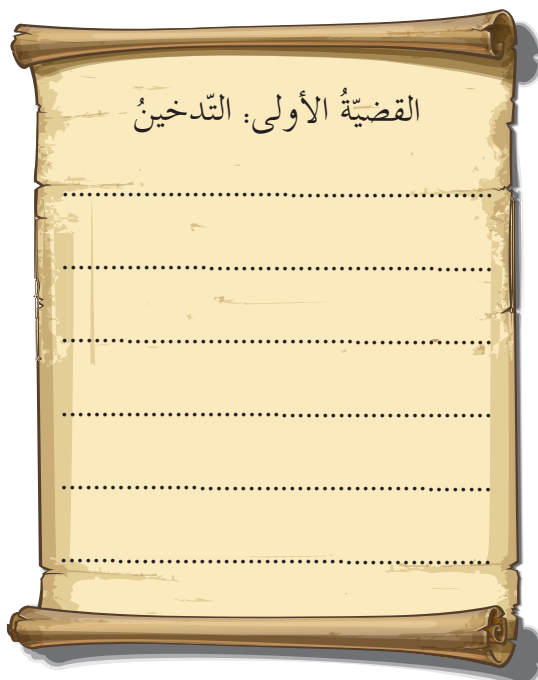 القضيّةُ الأولى: التّدخينُ